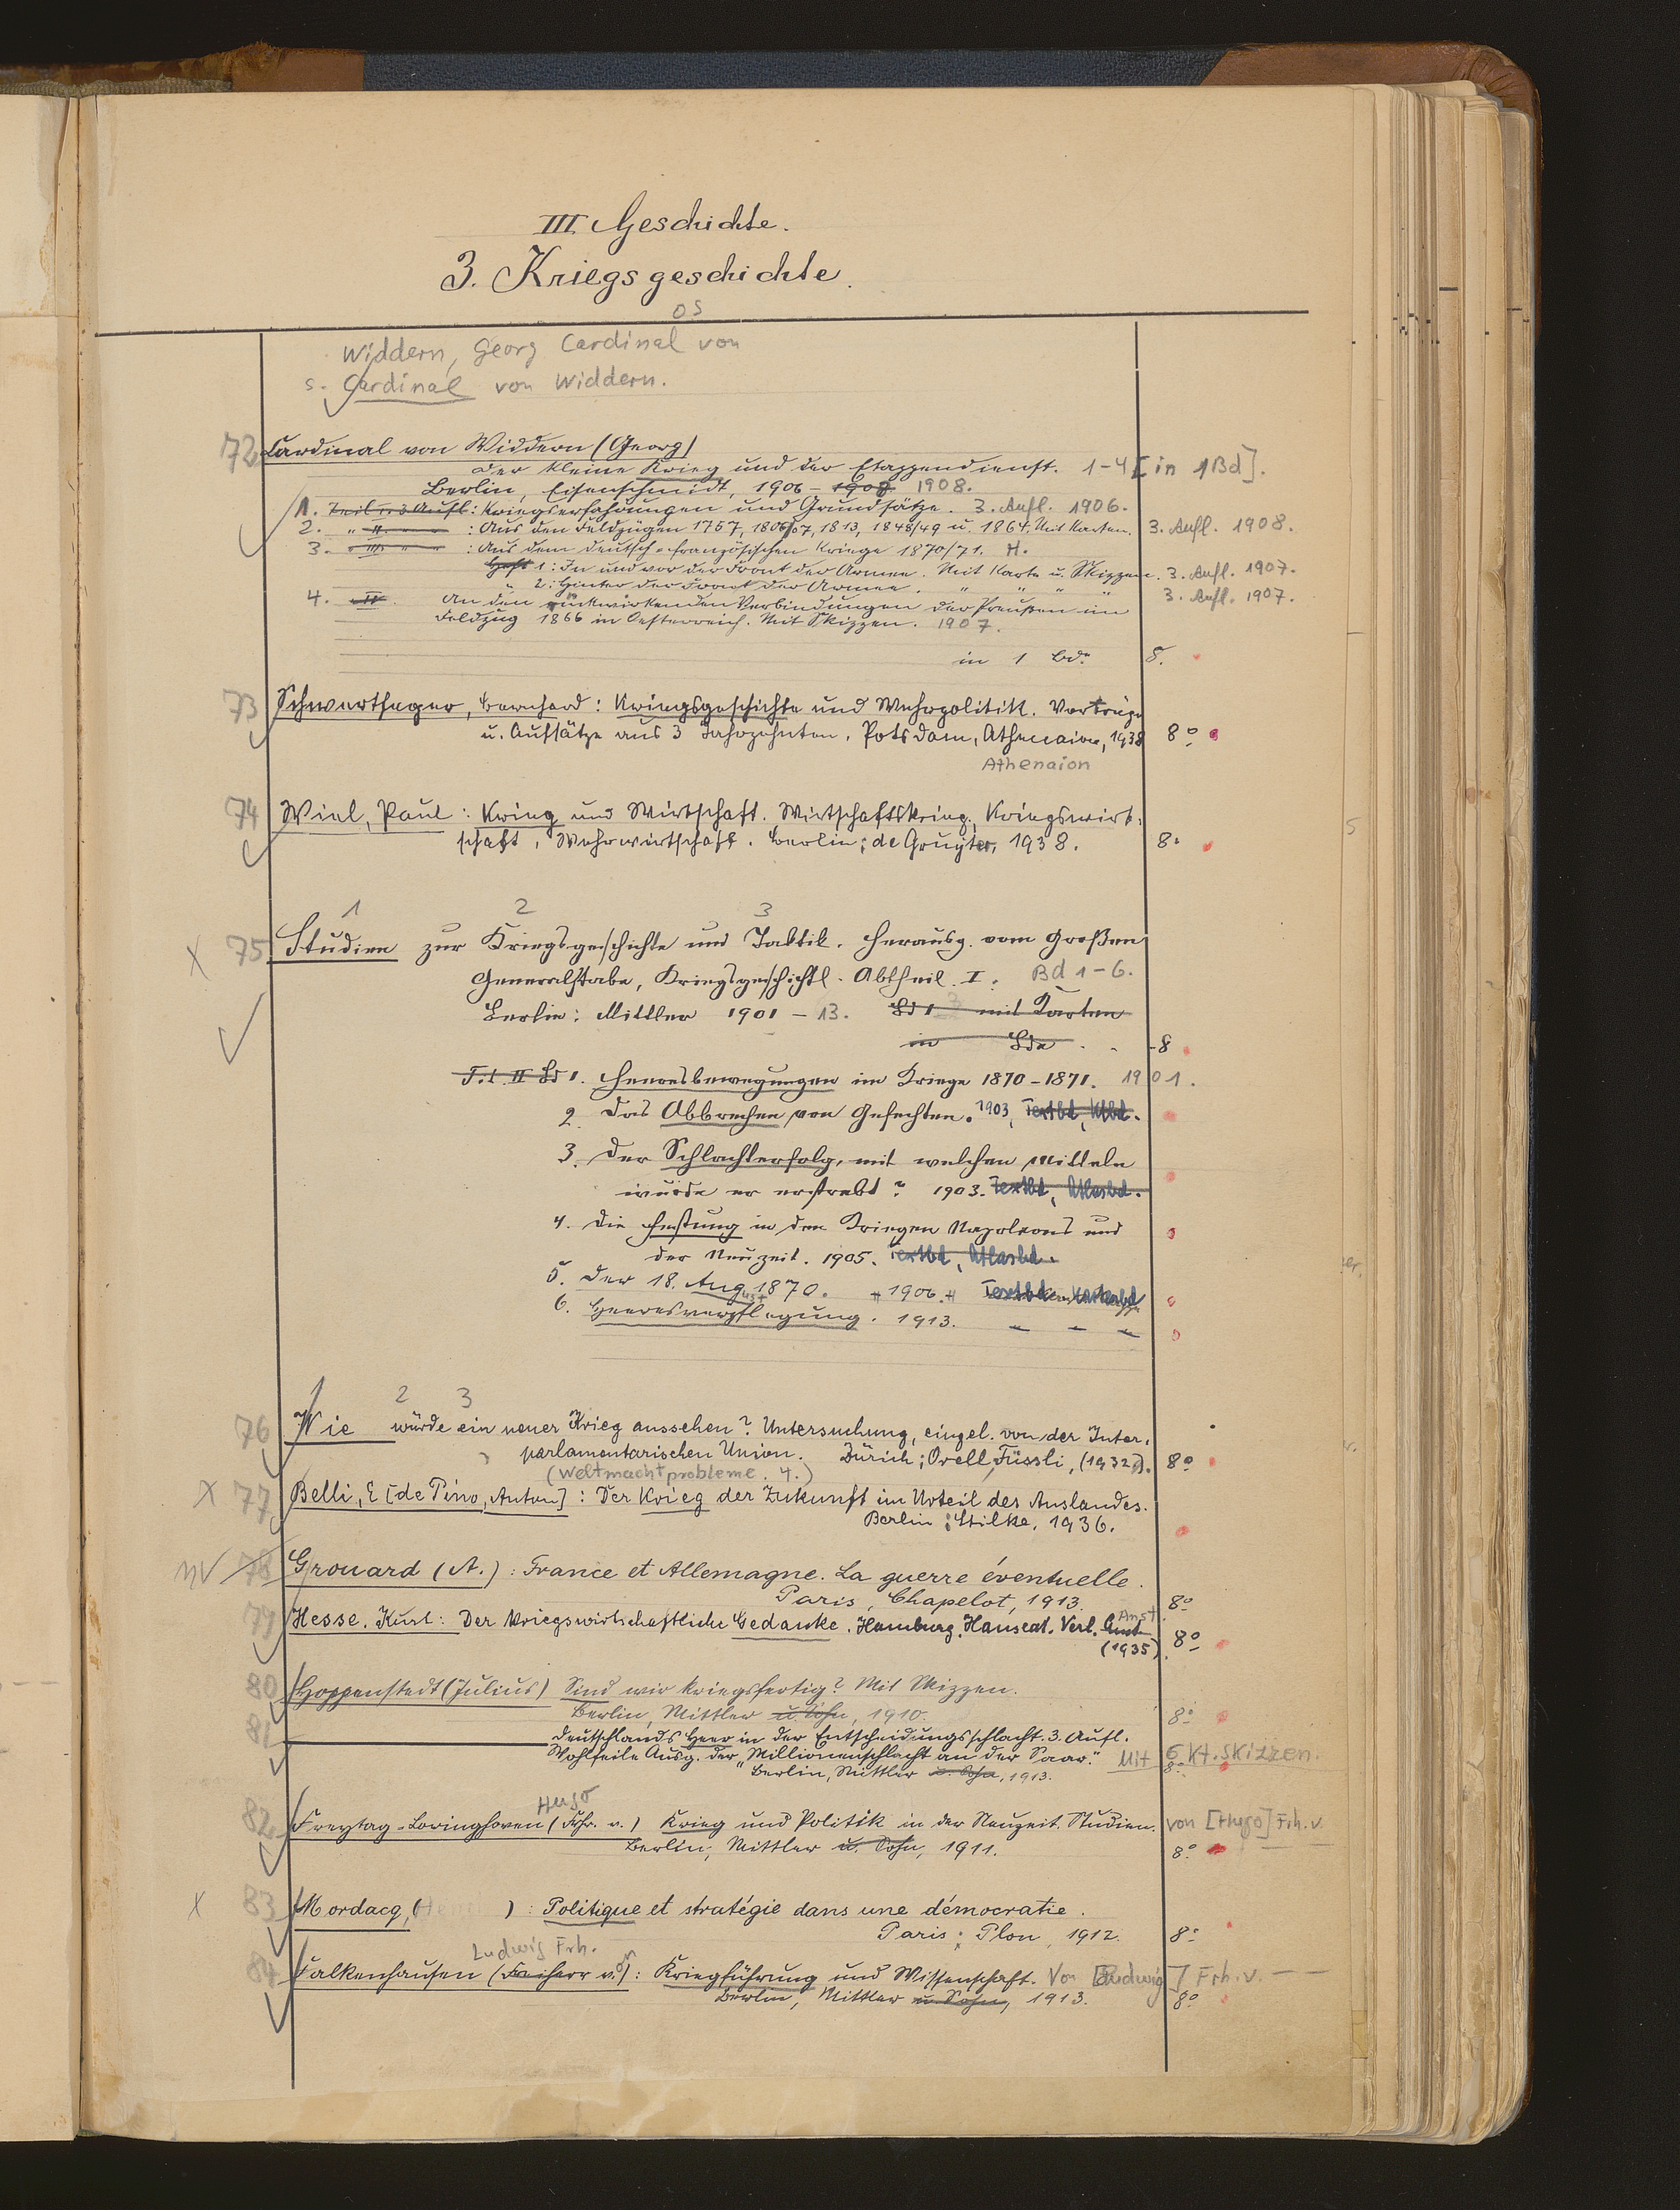 III. Geschichte.
3. Kriegsgeschichte.
os
Widdern, Georg Cardinal von
s. Cardinal von Widdern.
72 Cardinal von Widdern (Georg)
Der kleine Krieg und der Etappendienst. 1-4 [in 1 Bd].
Berlin, Eisenschmidt, 1906 - 1908 1908.
1. Teil 3 Aufl: Kriegserfahrungen und Grundsätze. 3. Aufl. 1906.
2. " II " : Aus den Feldzügen 1757, 1806/07, 1813, 1848/49 u. 1864. Mit Karten. 3. Aufl. 1908.
3. " III " : Aus dem deutsch-französischen Kriege 1870/71.
Heft 1: In und vor der Front der Armee. Mit Karte u. Skizzen. 3. Aufl. 1907.
" 2: Hinter der Front der Armee. " " " " 3. Aufl. 1907.
4. IV. An den rückwirkenden Verbindungen der Preußen im
Feldzug 1866 in Oesterreich. Mit Skizzen. 1907.
in 1 Bd. 8.
73 Schwertfeger, Bernhard: Kriegsgeschichte und Wehrpolitik. Vorträge
u. Aufsätze aus 3 Jahrzehnten. Potsdam, Athenaion, 1938 8º
Athenaion
74 Wiel, Paul: Krieg und Wirtschaft. Wirtschaftskrieg, Kriegswirt-
schaft, Wehrwirtschaft. Berlin; de Gruyter, 1938. 8º
1 2 3
X 75 Studien zur Kriegsgeschichte und Taktik. Herausg. vom Großen
Generalstabe, Kriegsgeschichtl. Abtheil. I. Bd 1-6.
Berlin: Mittler 1901 - 13. Bd 1 mit Karten
in Bde. 8
T. I. II Bd 1. Heeresbewegungen im Kriege 1870-1871. 1901.
2. Das Abbrechen von Gefechten. 1903, Textbd, Ktbd.
3. Der Schlachterfolg, mit welchen Mitteln
wurde er erstrebt? 1903. Textbd, Atlasbd.
4. Die Festung in den Kriegen Napoleons und
der Neuzeit. 1905. Textbd, Atlasbd.
5. Der 18. August 1870. 1906. Textbd
6. Heeresverpflegung. 1913. " " "
1 2 3
76 Wie würde ein neuer Krieg aussehen? Untersuchung, eingel. von der Inter-
parlamentarischen Union. Zürich; Orell Füssli, (1932). 8º
(Weltmachtprobleme. 4.)
X 77 Belli, E [de Pino, Anton]: Der Krieg der Zukunft im Urteil des Auslandes.
Berlin: Stilke, 1936.
NV 78 Grouard (A.): France et Allemagne. La guerre éventuelle.
Paris, Chapelot, 1913. 8º
79 Hesse, Kurt: Der kriegswirtschaftliche Gedanke. Hamburg, Hanseat. Verl. Anst.
(1935). 8º
80 Hoppenstedt (Julius) Sind wir kriegsfertig? Mit Skizzen.
Berlin, Mittler u. Sohn, 1910. 8º
81 Deutschlands Heer in der Entscheidungsschlacht. 3. Aufl.
Wohlfeile Ausg. der "Millionenschlacht an der Saar." Mit 6 Kt. Skizzen.
Berlin, Mittler u. Sohn, 1913. 8º
Hugo
82 Freytag-Loringhoven (Frhr. v.) Krieg und Politik in der Neuzeit. Studien. von [Hugo] Frh. v.
Berlin, Mittler u. Sohn, 1911. 8º
X 83 Mordacq, ( ): Politique et stratégie dans une démocratie.
Paris: Plon, 1912. 8º
Ludwig Frh.
84 Falkenhausen (Freiherr v.): Kriegführung und Wissenschaft. Von [Ludwig] Frh. v.
Berlin, Mittler u. Sohn, 1913. 8º